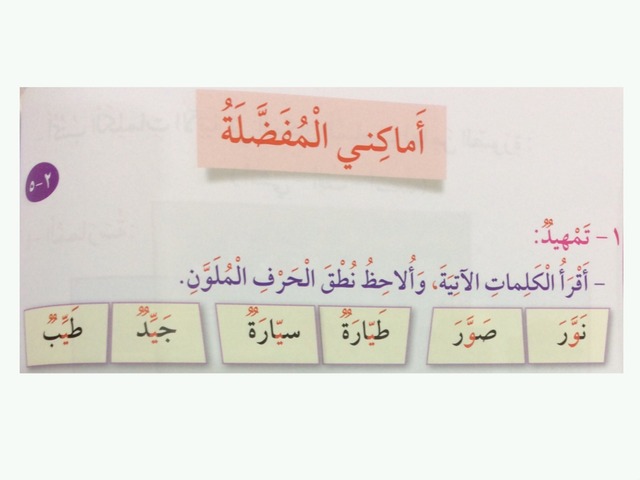 أَماكِني الْمُفَضَّلَةُ
٢-٥
١- تَمْهيدٌ:
- أَقْرَأُ الْكَلِماتِ الآتِيَةَ، وَأُلاحِظُ نُطْقَ الْحَرْفِ الْمُلَوَّنِ.
نَوَّرَ صَوَّرَ طَيّارَةٌ سيّارةٌ جَيِّدٌ طَيِّبٌ